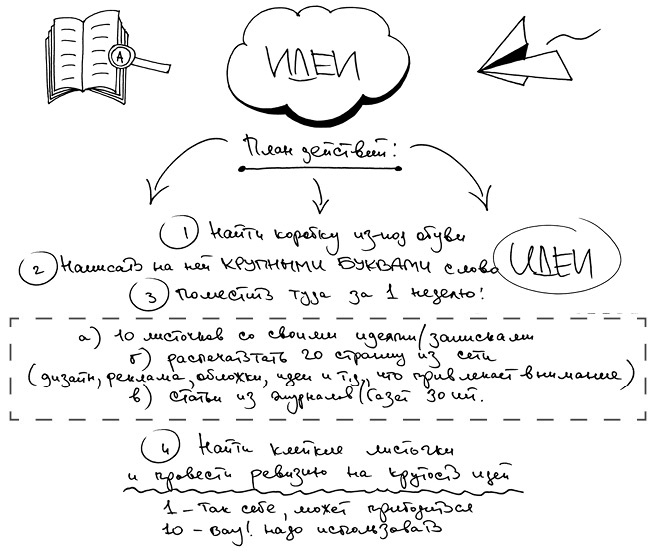 А
ИДЕИ
План действий:
1 Найти коробку из-под обуви
2 Написать на ней КРУПНЫМИ БУКВАМИ слово ИДЕИ
3 Поместить туда за 1 неделю:
а) 10 листочков со своими идеями/записками
б) распечатать 20 страниц из сети
(дизайн, реклама, обложки, идеи и т.д., что привлекает внимание)
в) статьи из журналов/газет 30 шт.
4 Найти клейкие листочки
и провести ревизию на крутость идей
1 – так себе, может пригодиться
10 – вау! надо использовать